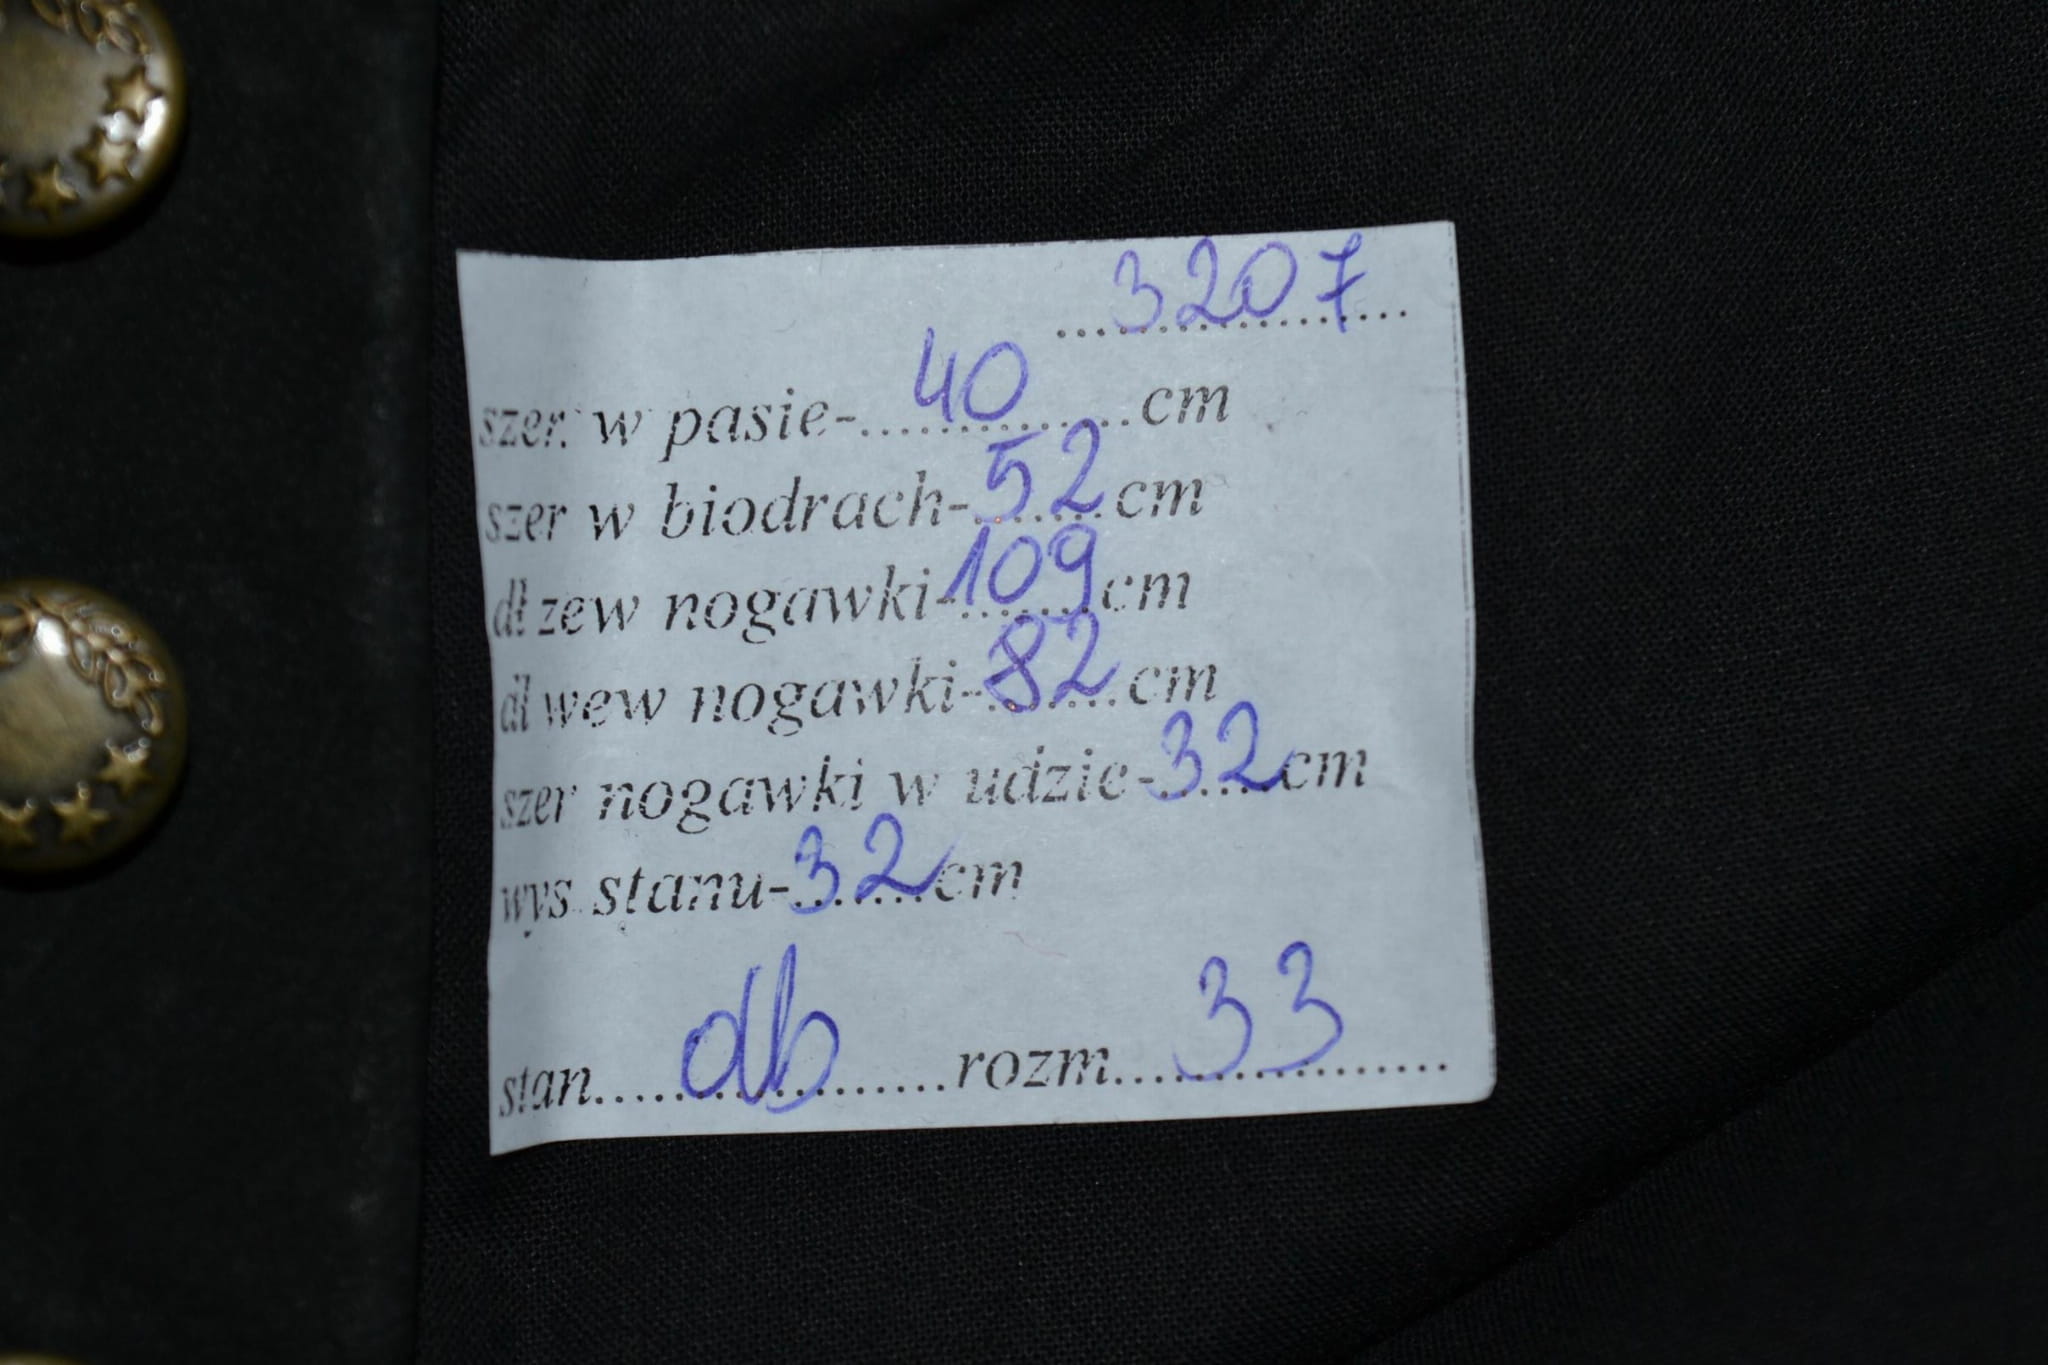 ...3207...
szer. w pasie-...40...cm
szer w biodrach-52cm
dł zew nogawki-109cm
dł wew nogawki-82cm
szer nogawki w udzie-32cm
wys stanu-32cm
stan....db....rozm....33....